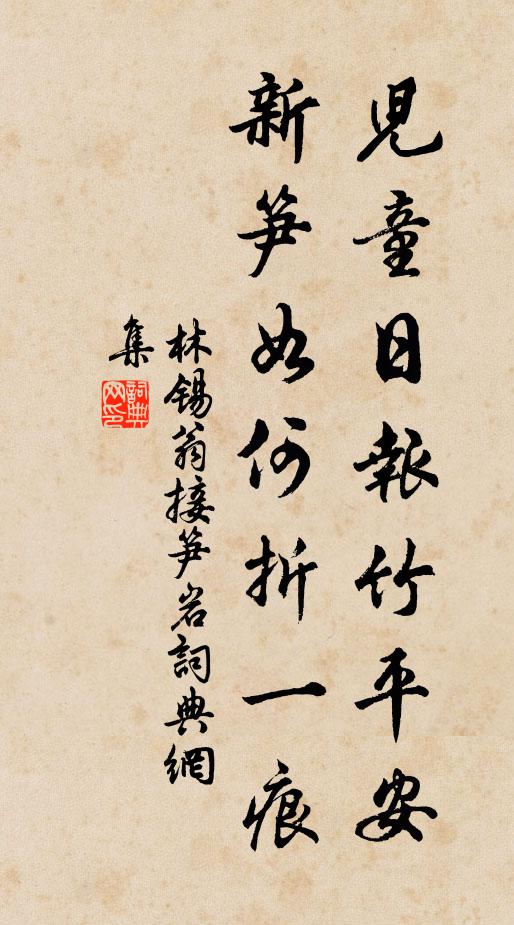 兒童日報竹平安
新笋如何折一痕
林錫翁接笋岩詞典網
集
詞典網印